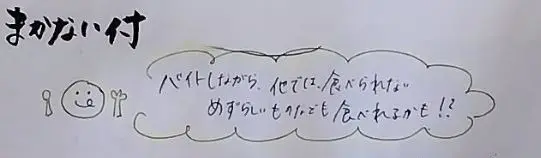 まかない付
バイトしながら、他では、食べられない
めずらしいものなでも食べれるかも!?